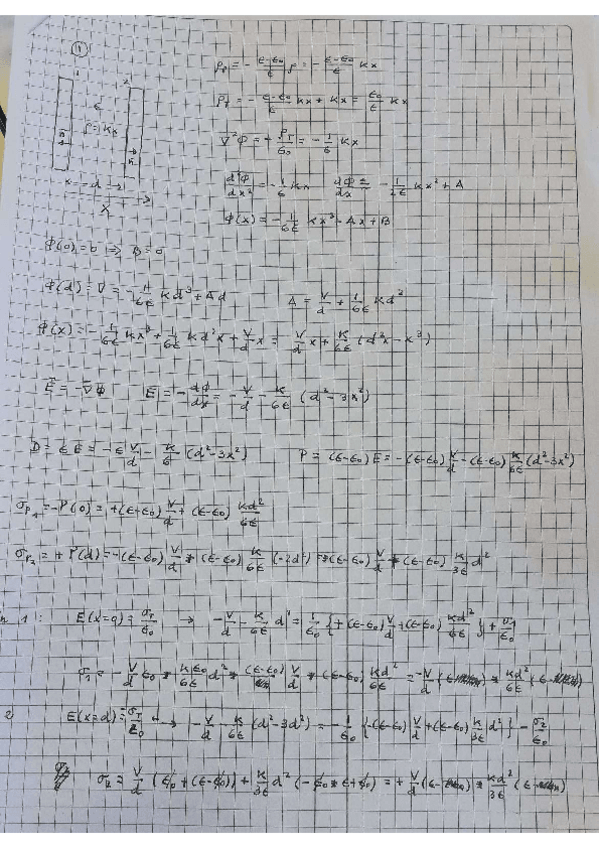 1
ε
ρ = kx
d
x
ρ_p = - (ε-ε₀)/ε ρ = - (ε-ε₀)/ε kx
ρ_T = - (ε-ε₀)/ε kx + kx = ε₀/ε kx
∇²Φ = - ρ_T/ε₀ = - 1/ε kx
d²Φ/dx² = - 1/ε kx    dΦ/dx = - 1/2ε kx² + A
Φ(x) = - 1/6ε kx³ + Ax + B
Φ(0) = 0 ⇒ B = 0
Φ(d) = V = - 1/6ε kd³ + Ad    A = V/d + 1/6ε kd²
Φ(x) = - 1/6ε kx³ + 1/6ε kd²x + V/d x = V/d x + k/6ε (d²x - x³)
E = -∇Φ    E = - dΦ/dx = - V/d - k/6ε (d² - 3x²)
D = εE = - ε V/d - k/6 (d² - 3x²)    P = (ε-ε₀)E = -(ε-ε₀) V/d - (ε-ε₀) k/6ε (d² - 3x²)
σ_P₁ = -P(0) = +(ε-ε₀) V/d + (ε-ε₀) kd²/6ε
σ_P₂ = +P(d) = -(ε-ε₀) V/d + (ε-ε₀) k/6ε (-2d²) = -(ε-ε₀) V/d + (ε-ε₀) k/3ε d²
1: E(x=0) = σ_T/ε₀ → - V/d - k/6ε d² = 1/ε₀ { +(ε-ε₀) V/d + (ε-ε₀) kd²/6ε } + σ₁/ε₀
σ₁ = - V/d ε₀ - kε₀/6ε d² - (ε-ε₀) V/d - (ε-ε₀) kd²/6ε = - V/d (ε) - kd²/6ε (ε)
2) E(x=d) = - σ_T/ε₀ → - V/d - k/6ε (d² - 3d²) = - 1/ε₀ { -(ε-ε₀) V/d + (ε-ε₀) k/3ε d² } - σ₂/ε₀
σ₂ = V/d (ε₀ + (ε-ε₀)) + k/3ε d² (-ε₀ - ε + ε₀) = + V/d (ε) - kd²/3ε (ε)